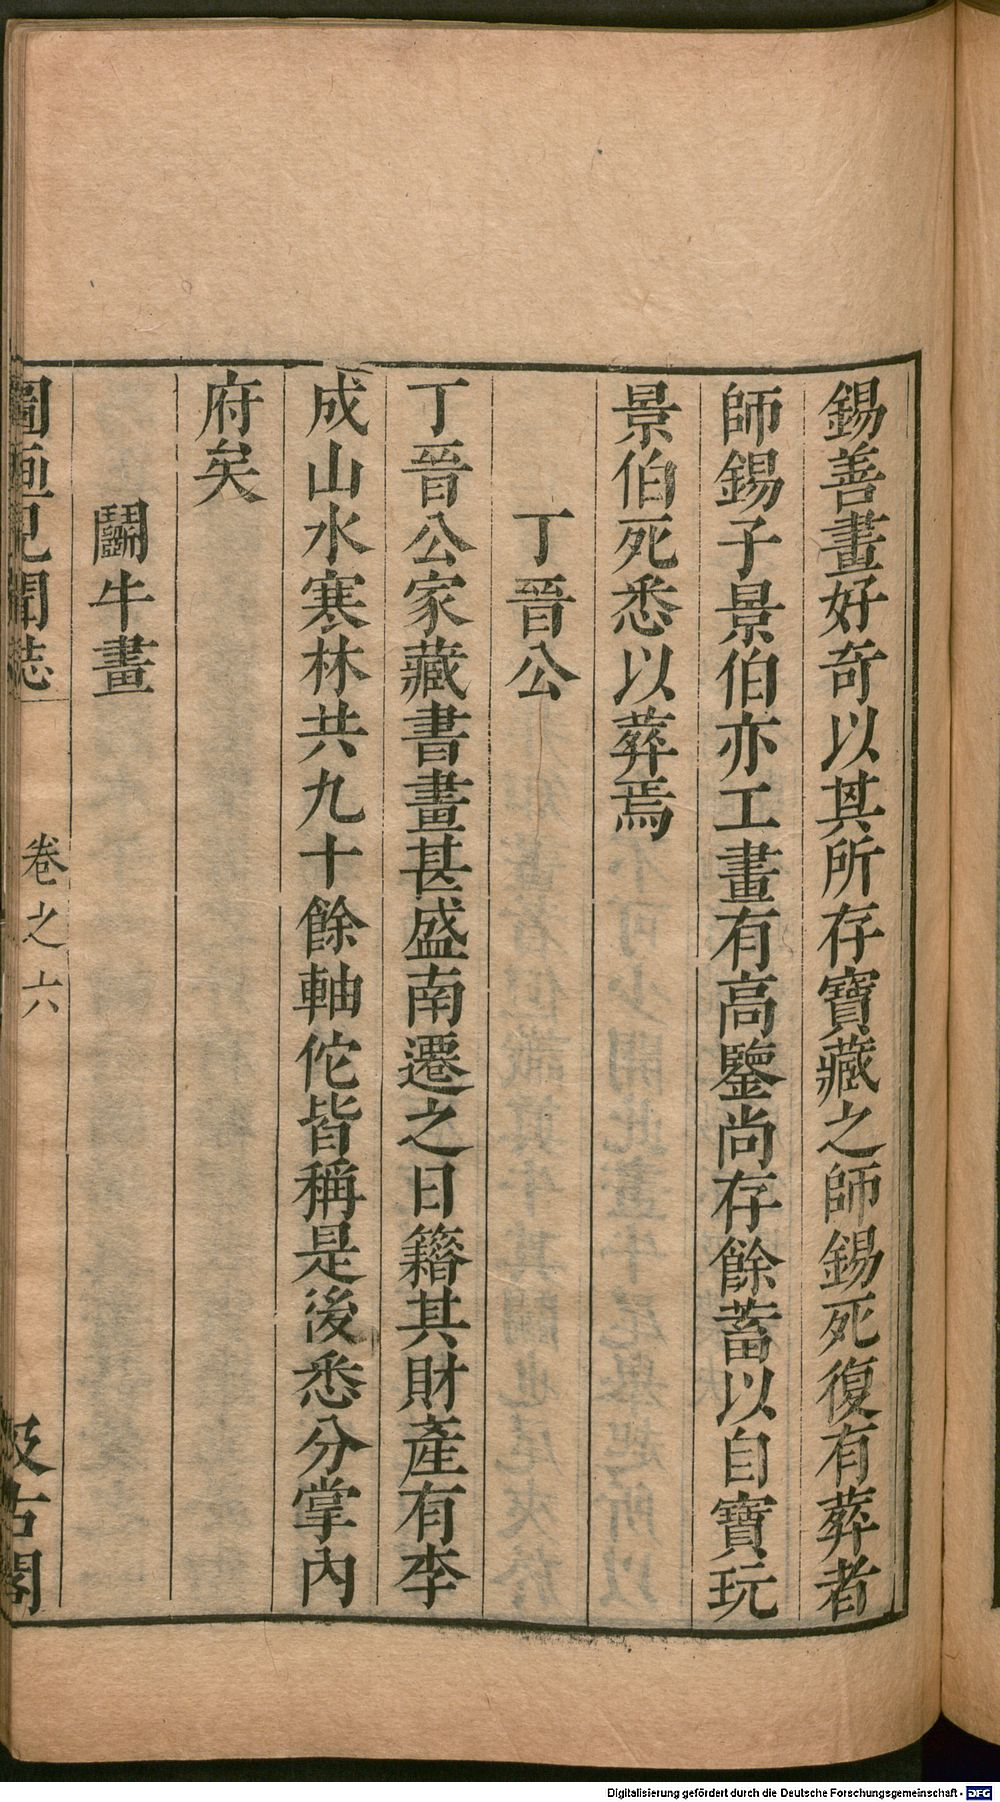 錫善畫好奇以其所存寶藏之師錫死復有葬者
師錫子景伯亦工畫有高鑒尚存餘蓄以自寶玩
景伯死悉以葬焉
丁晉公
丁晉公家藏書畫甚盛南遷之日籍其財產有李
成山水寒林共九十餘軸佗皆稱是後悉分掌內
府矣
鬬牛畫
圖畫見聞誌
卷之六
汲古閣
Digitalisierung gefördert durch die Deutsche Forschungsgemeinschaft - DFG